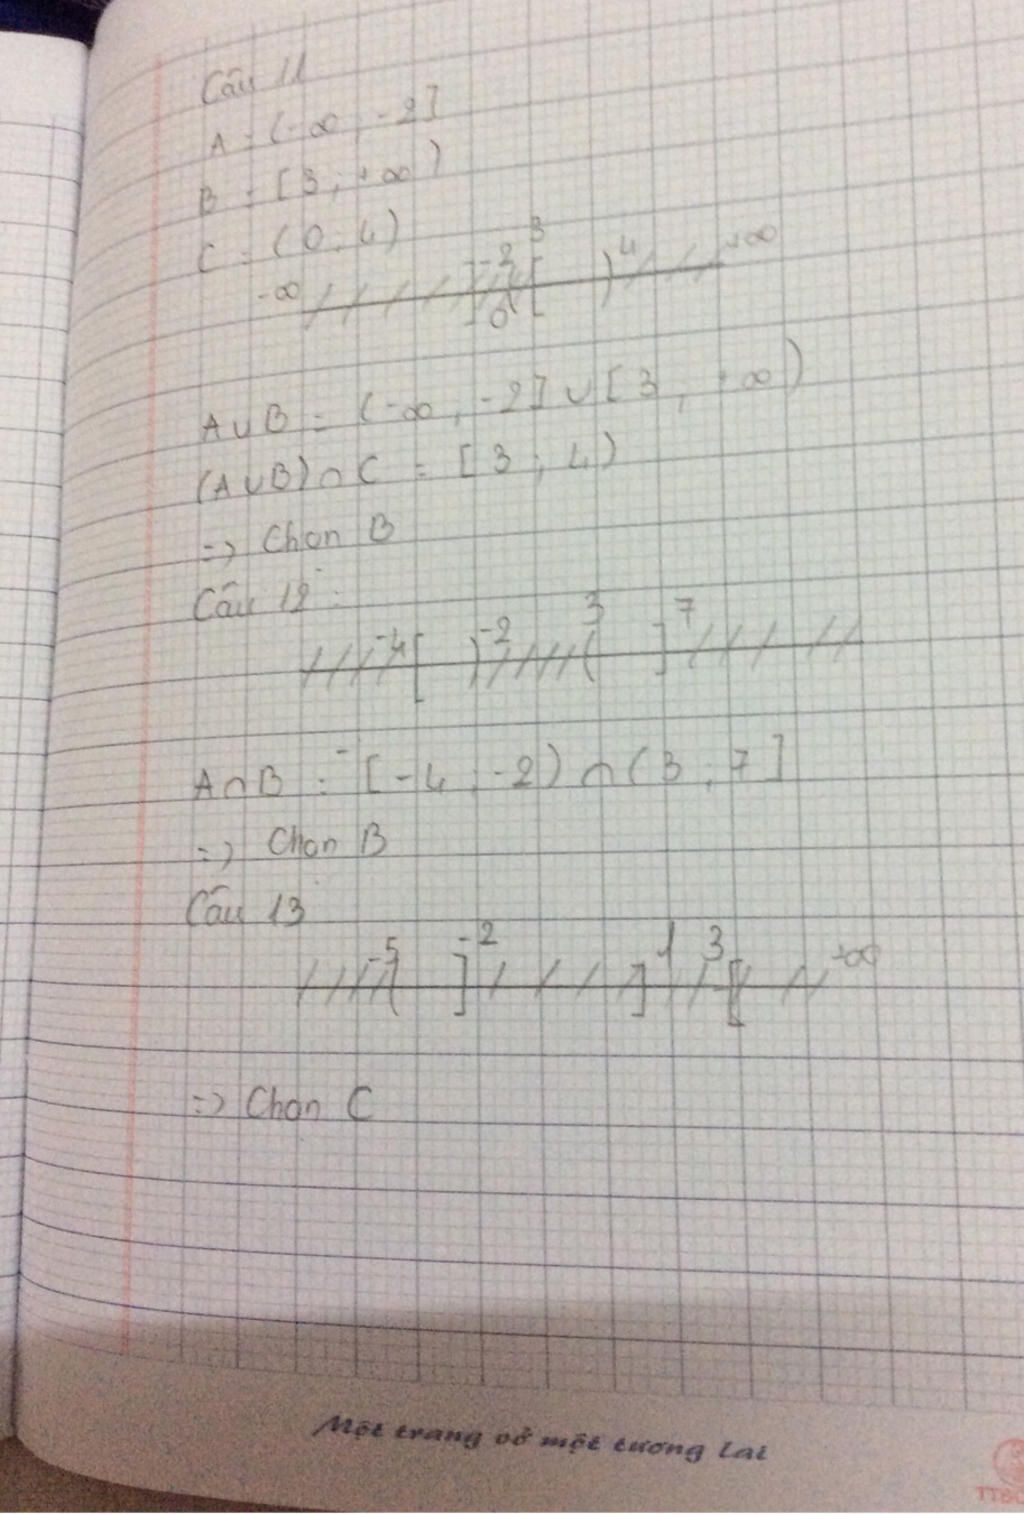 Câu 11
A = (-∞; -2]
B = [3; +∞)
C = (0; 4)
-∞ ] -2 0( 3 [ ) 4 +∞
A∪B = (-∞, -2] ∪ [3, +∞)
(A∪B)∩C = [3; 4)
=> Chọn B
Câu 12:
-4 [ ) -2 3 ( ] 7
A∩B = [-4; -2) ∩ (3; 7]
=> Chọn B
Câu 13
-5 ( ] -2 ] 1 3 [ +∞
=> Chọn C
Một trang vở một tương lai